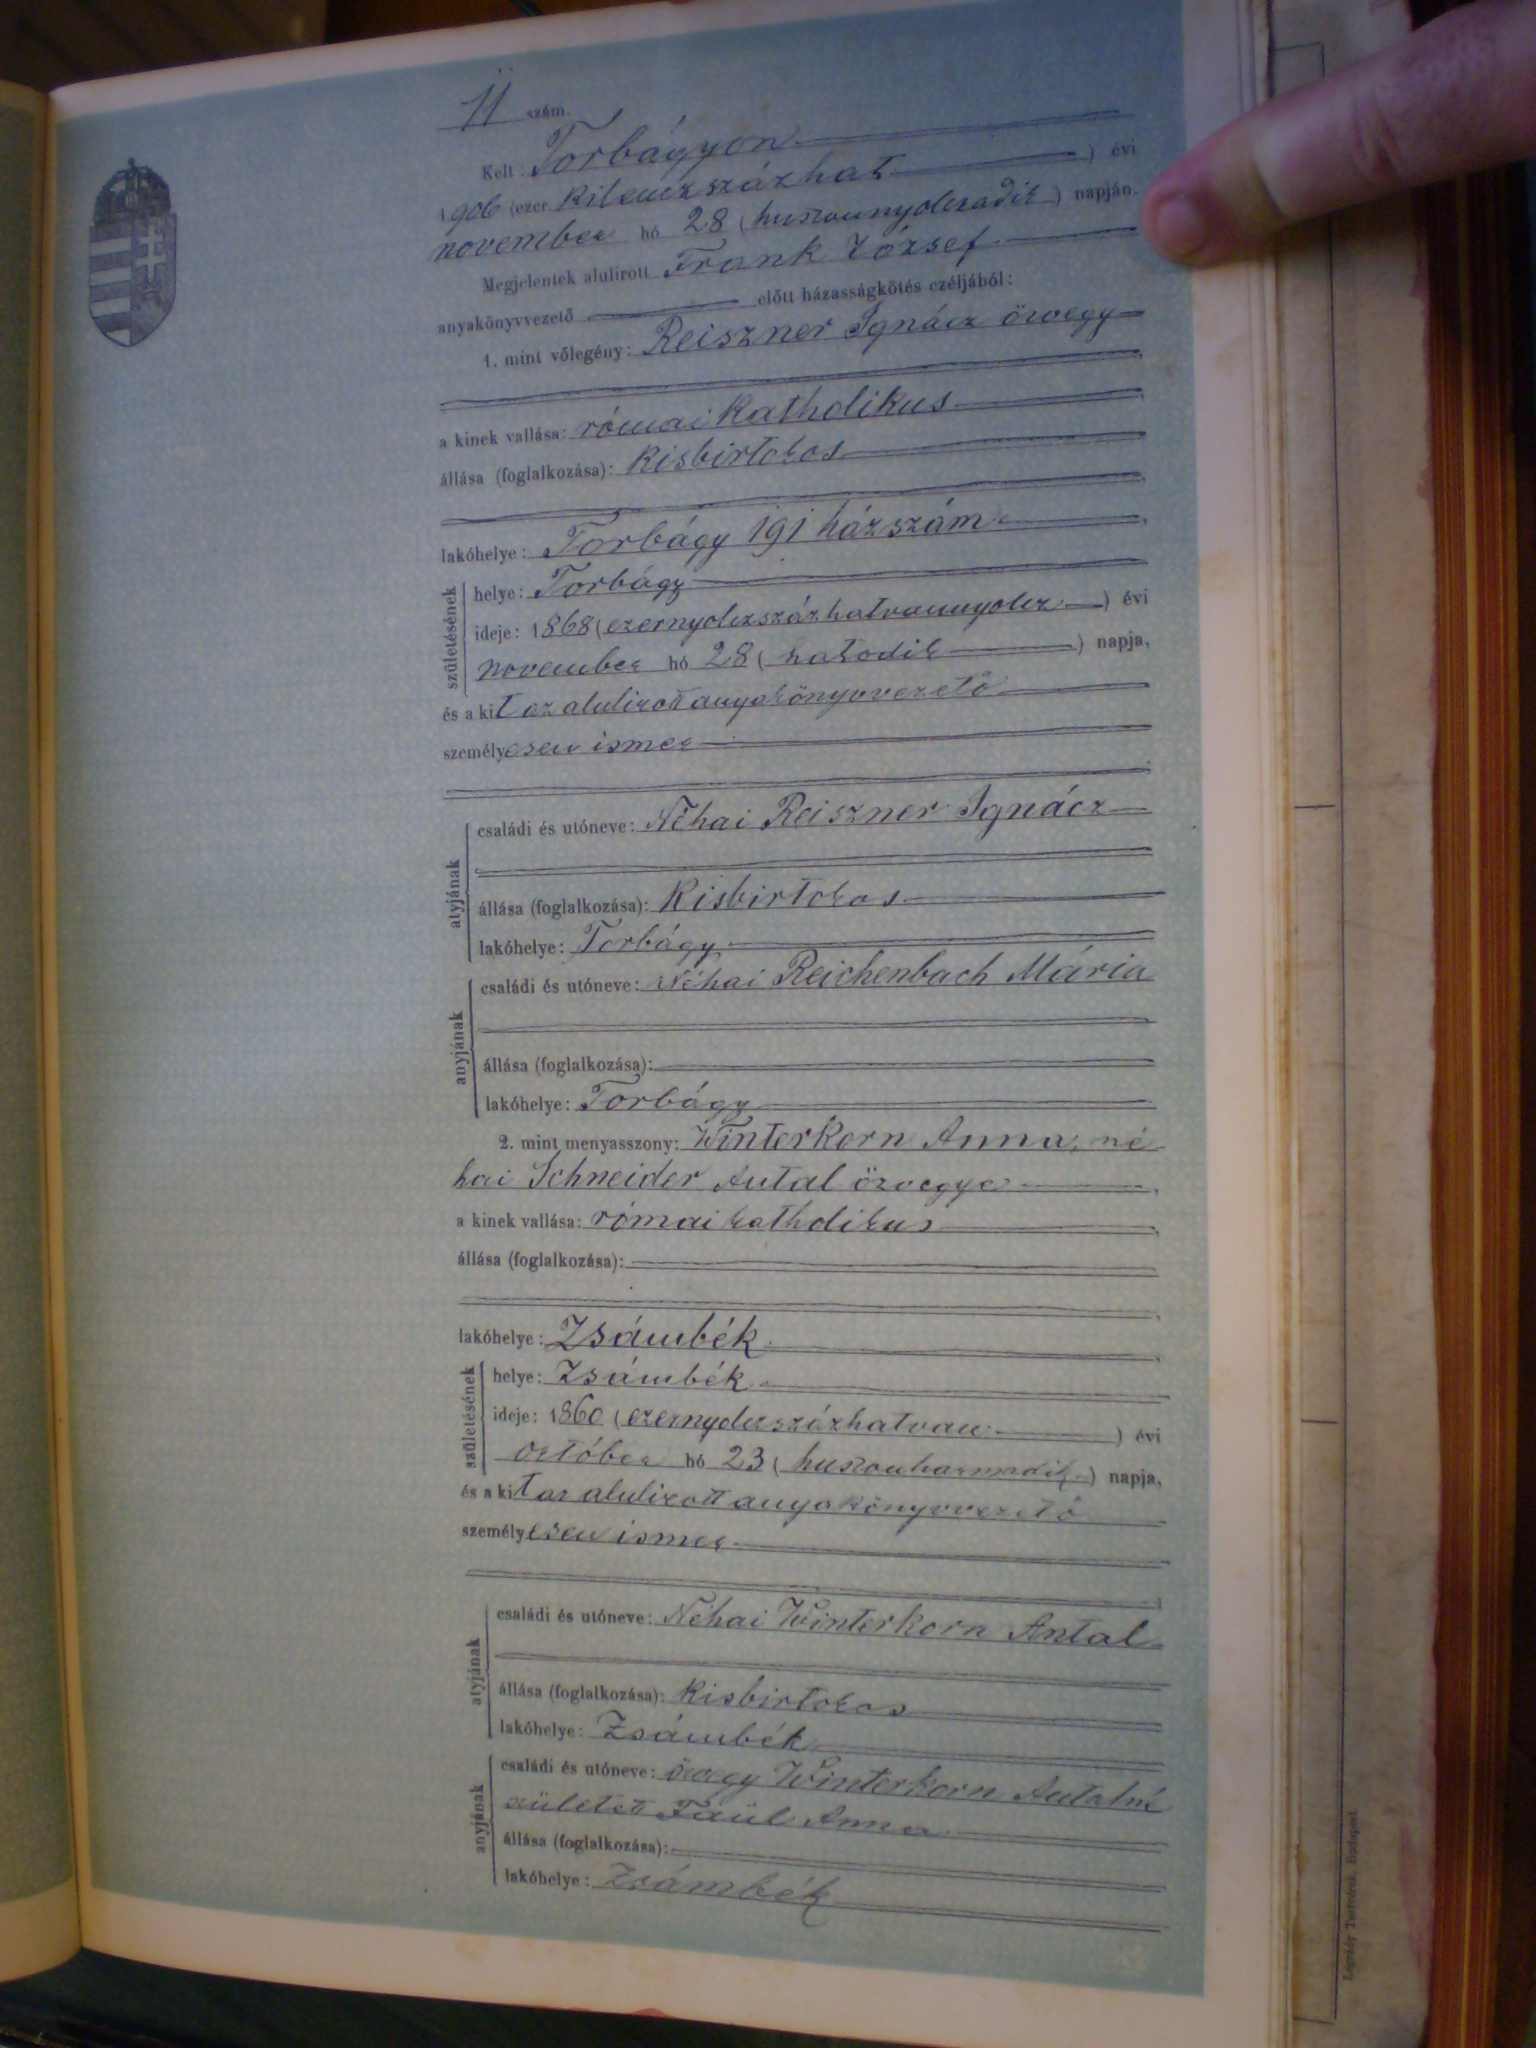 11 szám
Kelt: Torbágyon
1906 (ezer kilenczszázhat) évi
november hó 28 (huszonnyolczadik) napján.
Megjelentek alulirott Frank József
anyakönyvvezető előtt házasságkötés czéljából:
1. mint vőlegény: Reiszner Ignácz özvegy
a kinek vallása: római katholikus
állása (foglalkozása): kisbirtokos
lakóhelye: Torbágy 191 házszám
születésének
helye: Torbágy
ideje: 1868 (ezernyolczszázhatvannyolcz) évi
november hó 28 (hatodik) napja,
és a kit az alulirott anyakönyvvezető
személyesen ismer
atyjának
családi és utóneve: Néhai Reiszner Ignácz
állása (foglalkozása): Kisbirtokos
lakóhelye: Torbágy
anyjának
családi és utóneve: Néhai Reichenbach Mária
állása (foglalkozása):
lakóhelye: Torbágy
2. mint menyasszony: Winterkorn Anna, né
hai Schneider Antal özvegye
a kinek vallása: római katholikus
állása (foglalkozása):
lakóhelye: Zsámbék
születésének
helye: Zsámbék
ideje: 1860 (ezernyolczszázhatvan) évi
október hó 23 (huszonharmadik) napja,
és a kit az alulirott anyakönyvvezető
személyesen ismer
atyjának
családi és utóneve: Néhai Winterkorn Antal
állása (foglalkozása): Kisbirtokos
lakóhelye: Zsámbék
anyjának
családi és utóneve: özvegy Winterkorn Antalné
született Anna
állása (foglalkozása):
lakóhelye: Zsámbék
Légrády Testvérek, Budapest